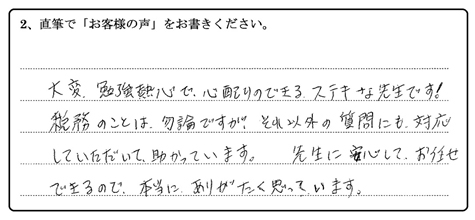 2、直筆で「お客様の声」をお書きください。
大変、勉強熱心で、心配りのできる、ステキな先生です!
税務のことは、勿論ですが、それ以外の質問にも、対応
していただいて、助かっています。 先生に安心して、お任せ
できるので、本当に、ありがたく思っています。